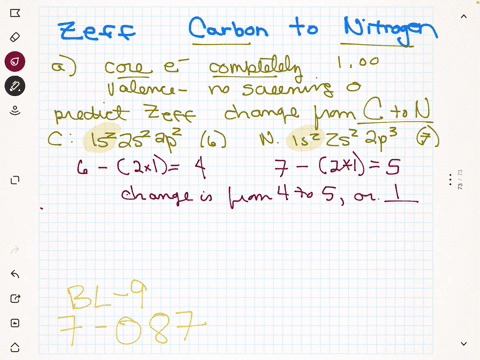 Zeff Carbon to Nitrogen
a) core e⁻ completely 1.00
Valence - no screening 0
predict Zeff change from C to N
C: 1s² 2s² 2p² (6) N: 1s² 2s² 2p³ (7)
6 - (2×1) = 4 7 - (2×1) = 5
change is from 4 to 5, or 1
BL-9
7-087
73 / 73